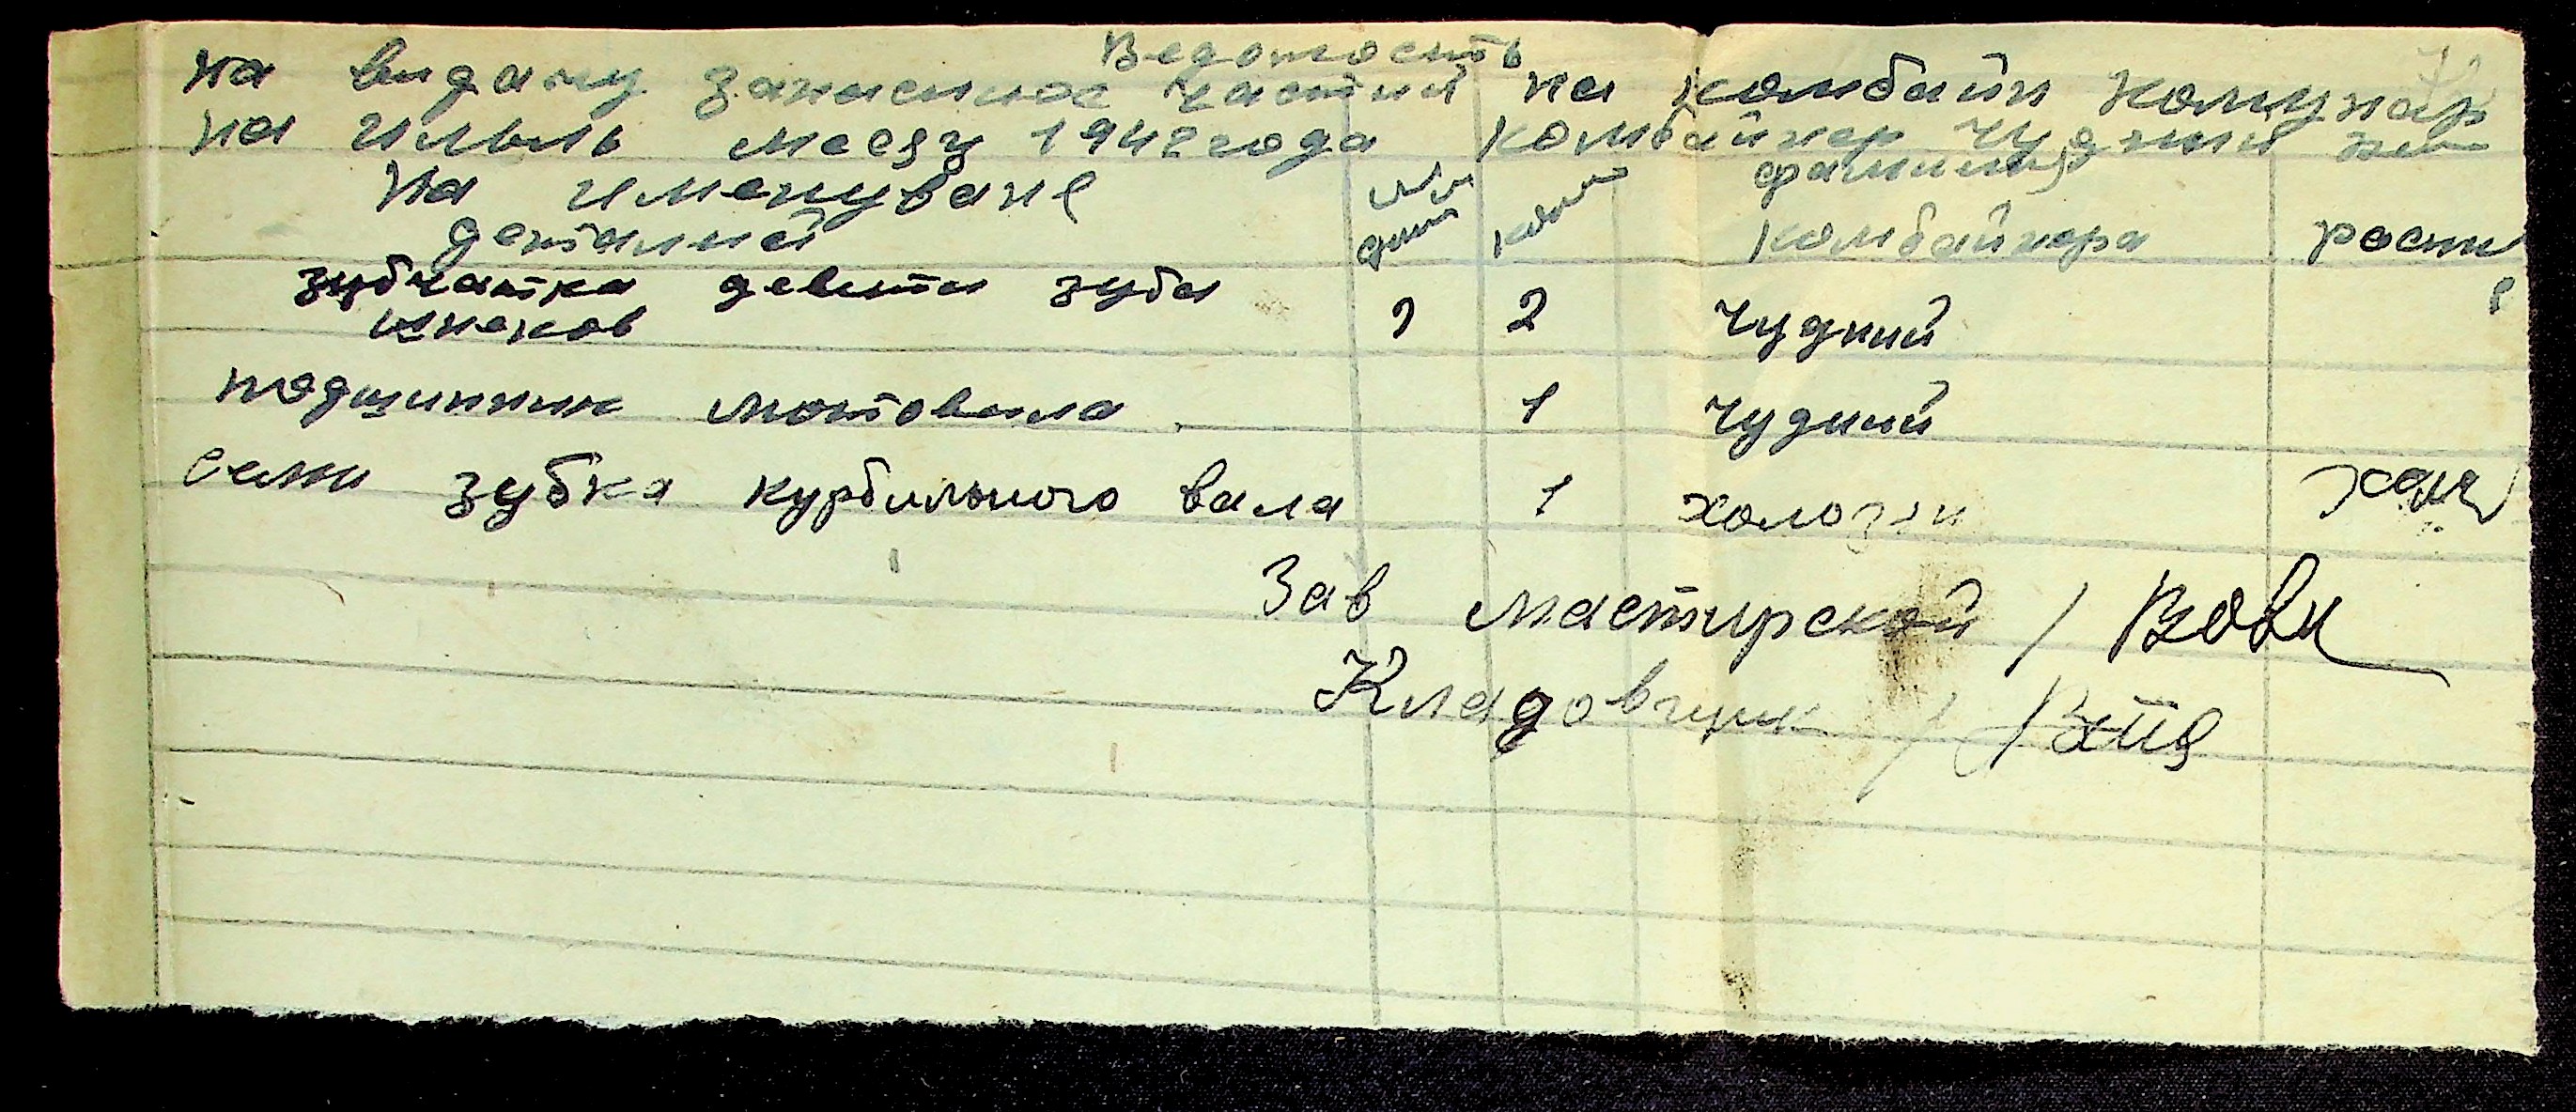 Ведомость
на видачу запасних частий на комбайн комунар
на Июль месяц 1942 года комбайнер Чудний
На именуване деталией
№№ дет
колич
фамилия комбайнера
роспи
зубчатка девяти зуба шнеков 2 Чудний
подшипник мотовила 1 Чудний
семи зубка курбильного вала 1 холозян
Зав мастирской / Вовк
Кладовщик /